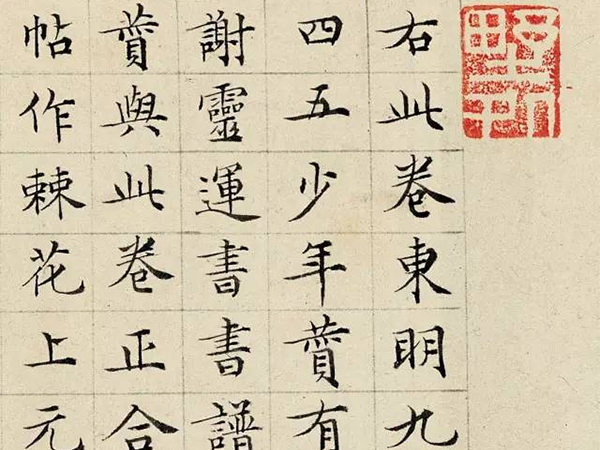 右此卷東明九
四五少年贊有
謝靈運書書譜
贊與此卷正合
帖作棘花上元